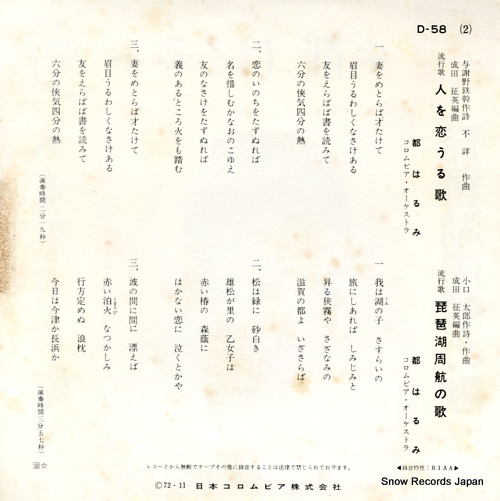 D-58 (2)
与謝野鉄幹作詩 不詳 作曲
成田 征英編曲
流行歌 人を恋うる歌
都はるみ
コロムビア・オーケストラ
一 妻をめとらば才たけて
眉目うるわしくなさけある
友をえらばば書を読みて
六分の侠気四分の熱
二、恋のいのちをたずぬれば
名を惜しむかなおのこゆえ
友のなさけをたずぬれば
義のあるところ火をも踏む
三、妻をめとらば才たけて
眉目うるわしくなさけある
友をえらばば書を読みて
六分の侠気四分の熱
(演奏時間二分一九秒)
小口 太郎作詩・作曲
成田 征英編曲
流行歌 琵琶湖周航の歌
都はるみ
コロムビア・オーケストラ
一 我は湖の子 さすらいの
旅にしあれば しみじみと
昇る狭霧や さざなみの
滋賀の都よ いざさらば
二、松は緑に 砂白き
雄松が里の 乙女子は
赤い椿の 森蔭に
はかない恋に 泣くとかや
三、波の間に間に 漂えば
赤い泊火 なつかしみ
行方定めぬ 浪枕
今日は今津か長浜か
(演奏時間三分五七秒)
◀録音特性:RIAA▶
レコードから無断でテープその他に録音することは法律で禁じられております。
Ⓒ72・11 日本コロムビア株式会社
Snow Records Japan
(C)